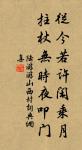 從今若許閑乘月
拄杖無時夜叩門
陸游游山西村詩典網集